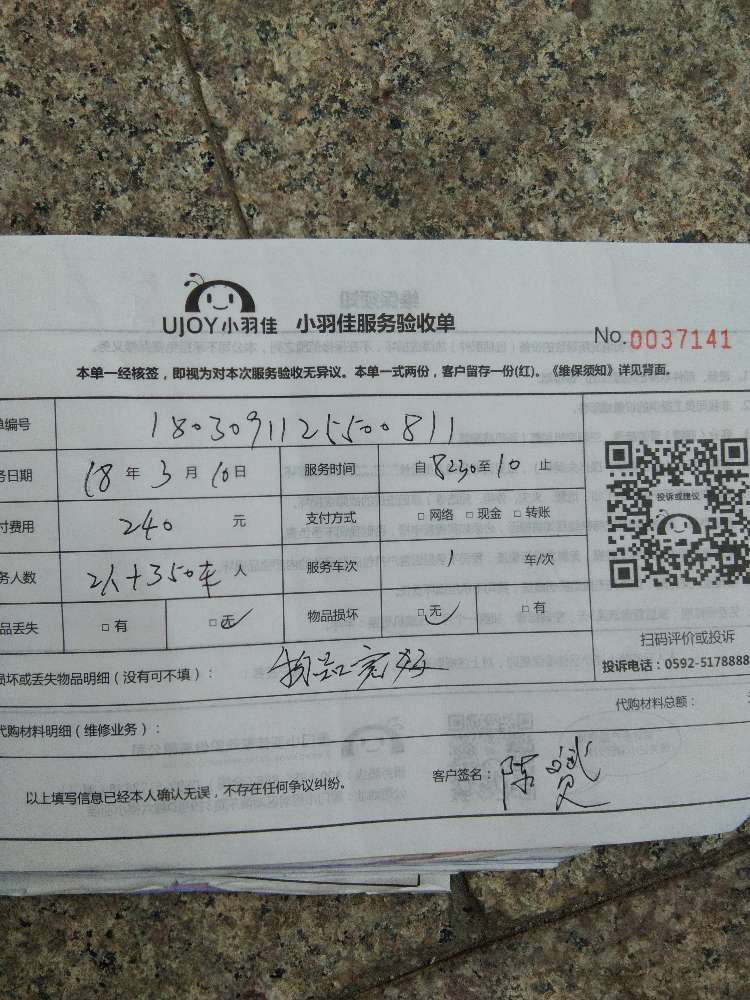 UJOY小羽佳 小羽佳服务验收单
No.0037141
本单一经核签，即视为对本次服务验收无异议。本单一式两份，客户留存一份(红)。《维保须知》详见背面。
单编号 1803091125500811
务日期 18 年 3 月 10 日 服务时间 自 8:30 至 10 止
付费用 240 元 支付方式 □ 网络 □ 现金 □ 转账
务人数 2人+350车 人 服务车次 1 车/次
品丢失 □ 有 □ 无 物品损坏 □ 无 □ 有
投诉或建议
扫码评价或投诉
投诉电话：0592-5178888
损坏或丢失物品明细（没有可不填）： 物品完好
代购材料总额：
代购材料明细（维修业务）：
以上填写信息已经本人确认无误，不存在任何争议纠纷。 客户签名：陈